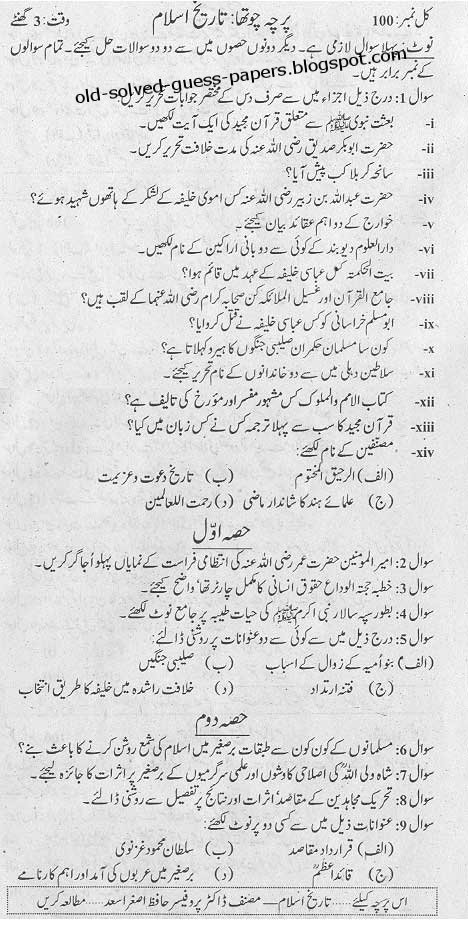 کل نمبر: 100 پرچہ چوتھا: تاریخ اسلام وقت: 3 گھنٹے
نوٹ: پہلا سوال لازمی ہے۔ دیگر دونوں حصوں میں سے دو دو سوالات حل کیجئے۔ تمام سوالوں
کے نمبر برابر ہیں۔
old-solved-guess-papers.blogspot.com
سوال 1: درج ذیل اجزاء میں سے صرف دس کے مختصر جوابات تحریر کریں:
i- بعثت نبوی ﷺ سے متعلق قرآن مجید کی ایک آیت لکھیں۔
ii- حضرت ابوبکر صدیق رضی اللہ عنہ کی مدت خلافت تحریر کریں۔
iii- سانحہ کربلا کب پیش آیا؟
iv- حضرت عبداللہ بن زبیر رضی اللہ عنہ کس اموی خلیفہ کے لشکر کے ہاتھوں شہید ہوئے؟
v- خوارج کے دو اہم عقائد بیان کیجئے۔
vi- دارالعلوم دیوبند کے کوئی سے دو بانی اراکین کے نام لکھیں۔
vii- بیت الحکمتہ کس عباسی خلیفہ کے عہد میں قائم ہوا؟
viii- جامع القرآن اور غسیل الملائکہ کن صحابہ کرام رضی اللہ عنہما کے لقب ہیں؟
ix- ابو مسلم خراسانی کو کس عباسی خلیفہ نے قتل کروایا؟
x- کون سا مسلمان حکمران صلیبی جنگوں کا ہیرو کہلاتا ہے؟
xi- سلاطین دہلی میں سے دو خاندانوں کے نام تحریر کیجئے۔
xii- کتاب الامم والملوک کس مشہور مفسر اور مؤرخ کی تالیف ہے؟
xiii- قرآن مجید کا سب سے پہلا ترجمہ کس نے کس زبان میں کیا؟
xiv- مصنفین کے نام لکھئے:
(الف) الرحیق المختوم (ب) تاریخ دعوت و عزیمت
(ج) علمائے ہند کا شاندار ماضی (د) رحمت اللعالمین
حصہ اوّل
سوال 2: امیر المومنین حضرت عمر رضی اللہ عنہ کی انتظامی فراست کے نمایاں پہلو اُجاگر کریں۔
سوال 3: خطبہ حجتہ الوداع حقوق انسانی کا مکمل چارٹر تھا، واضح کیجئے۔
سوال 4: بطور سپہ سالار نبی اکرم ﷺ کی حیات طیبہ پر جامع نوٹ لکھئے۔
سوال 5: درج ذیل میں سے کوئی سے دو عنوانات پر روشنی ڈالئے:
(الف) بنو اُمیہ کے زوال کے اسباب (ب) صلیبی جنگیں
(ج) فتنہ ارتداد (د) خلافت راشدہ میں خلیفہ کا طریق انتخاب
حصہ دوم
سوال 6: مسلمانوں کے کون کون سے طبقات برصغیر میں اسلام کی شمع روشن کرنے کا باعث بنے؟
سوال 7: شاہ ولی اللہؒ کی اصلاحی کاوشوں اور علمی سرگرمیوں کے برصغیر پر اثرات کا جائزہ لیجئے۔
سوال 8: تحریک مجاہدین کے مقاصد، اثرات اور نتائج پر تفصیل سے روشنی ڈالئے۔
سوال 9: عنوانات ذیل میں سے کسی دو پر نوٹ لکھئے:
(الف) قرارداد مقاصد (ب) سلطان محمود غزنوی
(ج) قائد اعظمؒ (د) برصغیر میں عربوں کی آمد اور اہم کارنامے
اس پرچہ کیلئے ...... تاریخ اسلام — مصنف ڈاکٹر پروفیسر حافظ اصغر اسعد ...... مطالعہ کریں